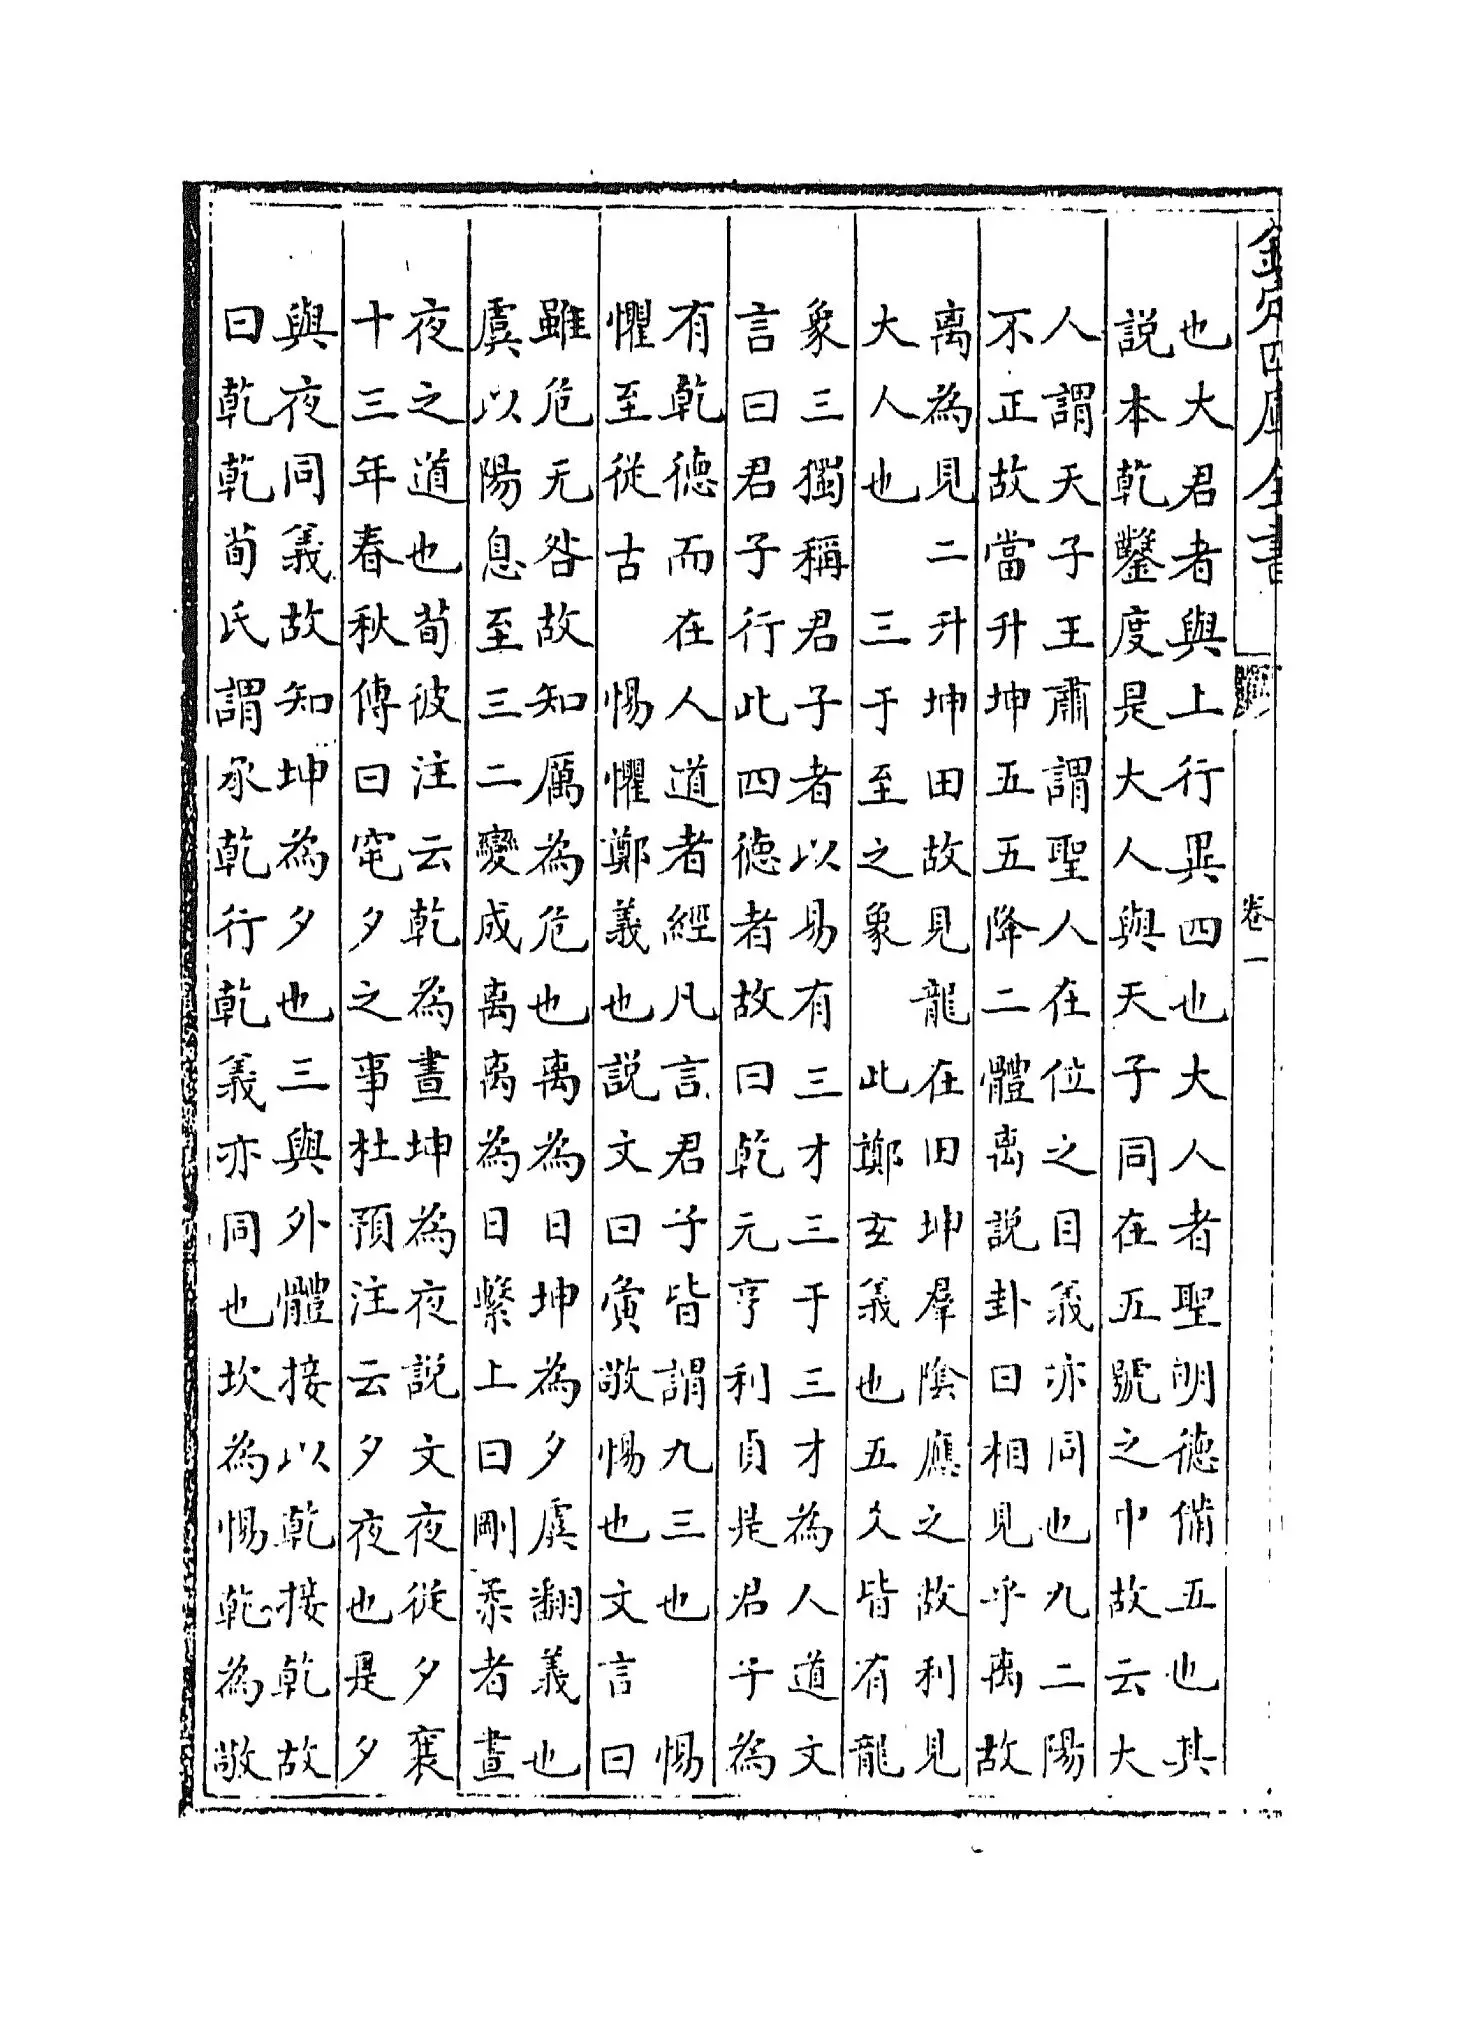 欽定四庫全書
卷一
也大君者與上行異四也大人者聖明德備五也其
説本乾鑿度是大人與天子同在五號之中故云大
人謂天子王肅謂聖人在位之目義亦同也九二陽
不正故當升坤五五降二體离説卦曰相見乎离故
离為見二升坤田故見龍在田坤羣陰應之故利見
大人也 三于至之象 此鄭玄義也五爻皆有龍
象三獨稱君子者以易有三才三于三才為人道文
言曰君子行此四德者故曰乾元亨利貞是君子為
有乾德而在人道者經凡言君子皆謂九三也 惕
懼至從古 惕懼鄭義也説文曰夤敬惕也文言曰
雖危无咎故知厲為危也离為日坤為夕虞翻義也
虞以陽息至三二變成离离為日繫上曰剛柔者晝
夜之道也荀彼注云乾為晝坤為夜説文夜從夕襄
十三年春秋傳曰窀夕之事杜預注云夕夜也是夕
與夜同義故知坤為夕也三與外體接以乾接乾故
曰乾乾荀氏謂承乾行乾義亦同也坎為惕乾為敬